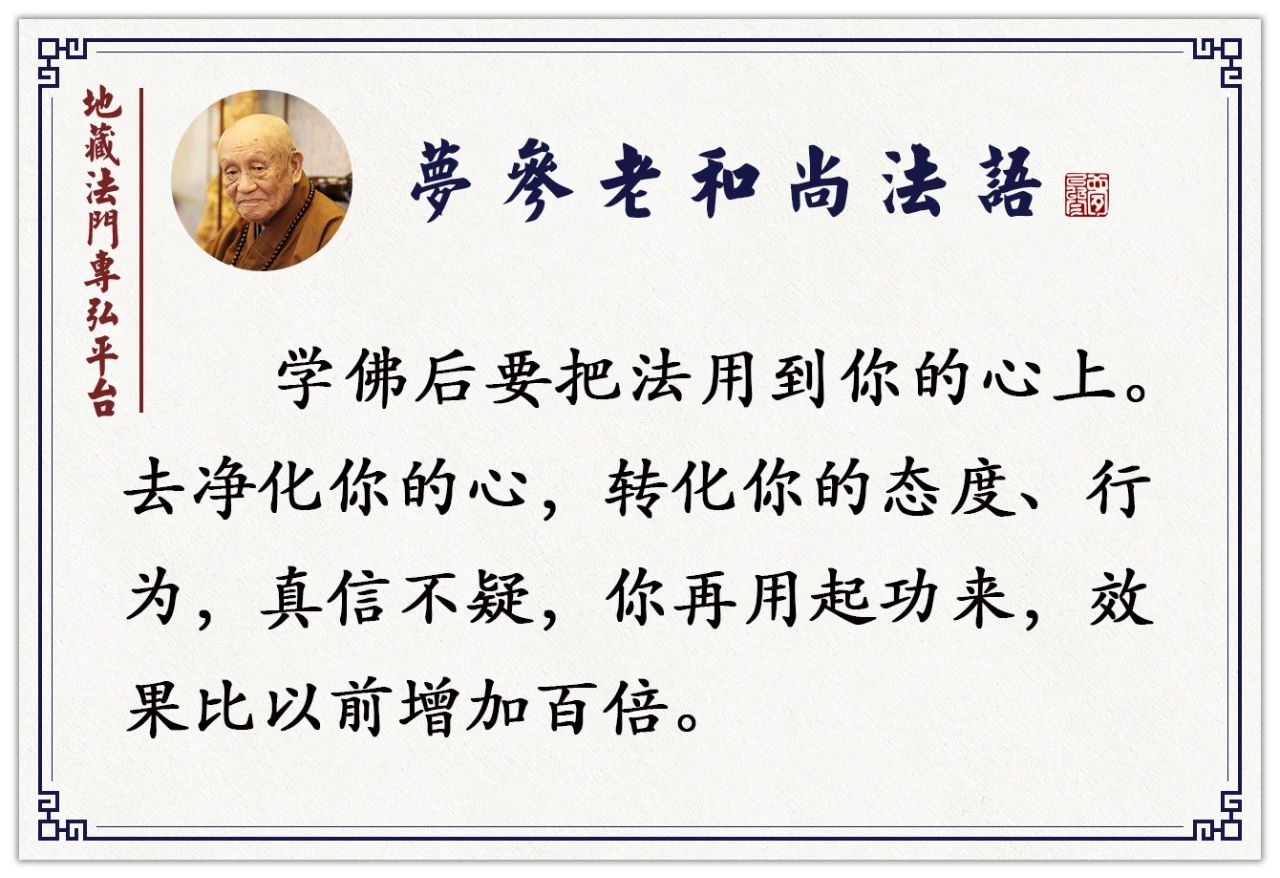 地藏法門專弘平台
夢參老和尚法語
学佛后要把法用到你的心上。
去净化你的心，转化你的态度、行
为，真信不疑，你再用起功来，效
果比以前增加百倍。